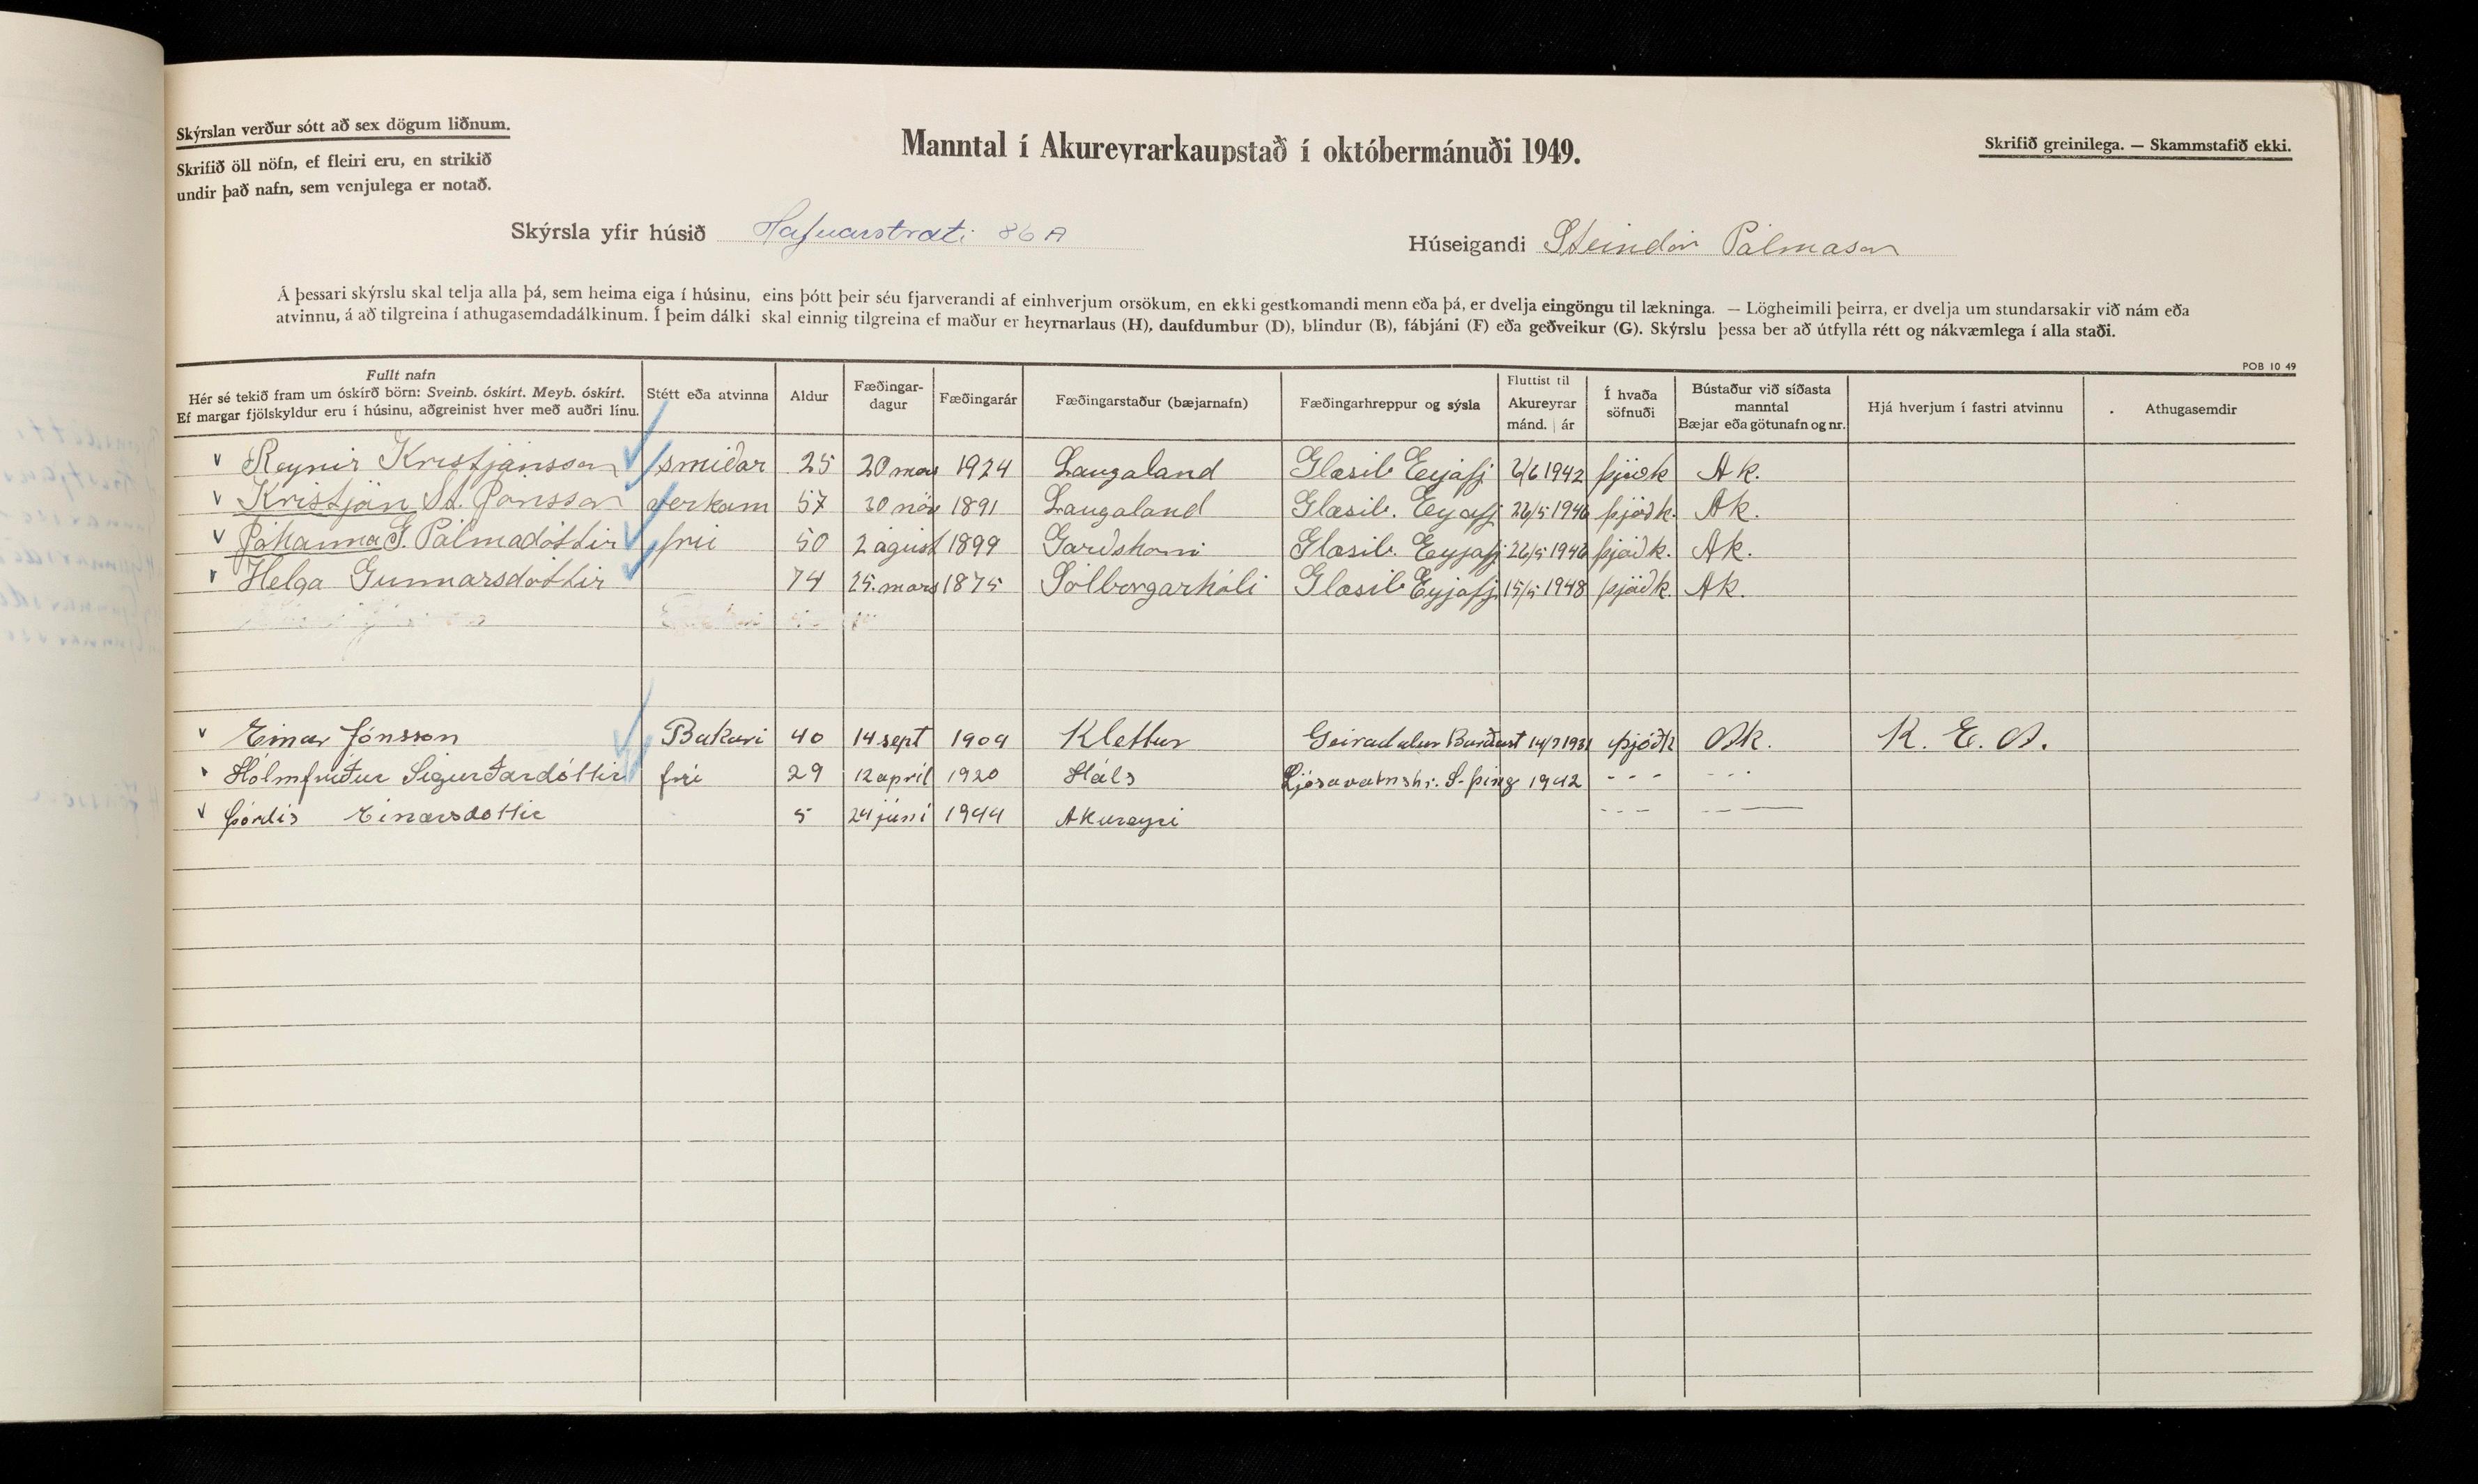 Skýrslan verður sótt að sex dögum liðnum.
Skrifið öll nöfn, ef fleiri eru, en strikið
undir það nafn, sem venjulega er notað.
Manntal í Akureyrarkaupstað í októbermánuði 1949.
Skrifið greinilega. — Skammstafið ekki.
Skýrsla yfir húsið Hafnarstræti 86 A
Húseigandi Steindór Pálmason
Á þessari skýrslu skal telja alla þá, sem heima eiga í húsinu, eins þótt þeir séu fjarverandi af einhverjum orsökum, en ekki gestkomandi menn eða þá, er dvelja eingöngu til lækninga. — Lögheimili þeirra, er dvelja um stundarsakir við nám eða
atvinnu, á að tilgreina í athugasemdadálkinum. Í þeim dálki skal einnig tilgreina ef maður er heyrnarlaus (H), daufdumbur (D), blindur (B), fábjáni (F) eða geðveikur (G). Skýrslu þessa ber að útfylla rétt og nákvæmlega í alla staði.
POB 10 49
Fullt nafn
Hér sé tekið fram um óskírð börn: Sveinb. óskírt. Meyb. óskírt.
Ef margar fjölskyldur eru í húsinu, aðgreinist hver með auðri línu.
Stétt eða atvinna
Aldur
Fæðingar-
dagur
Fæðingarár
Fæðingarstaður (bæjarnafn)
Fæðingarhreppur og sýsla
Fluttist til
Akureyrar
mánd. | ár
Í hvaða
söfnuði
Bústaður við síðasta
manntal
Bæjar eða götunafn og nr.
Hjá hverjum í fastri atvinnu
Athugasemdir
v Reynir Kristjánsson smiðar 25 20 mars 1924 Laugaland Glæsib Eyjafj 6/6 1942 þjóðk Ak.
v Kristján St. Jónsson verkam 57 30 nóv 1891 Laugaland Glæsib. Eyjafj 26/5 1946 þjóðk. Ak.
v Jóhanna G. Pálmadóttir frú 50 2 ágúst 1899 Garðshorni Glæsib. Eyjafj 26/5 1946 þjóðk. Ak.
v Helga Gunnarsdóttir 74 25. mars 1875 Sólborgarhóli Glæsib Eyjafj 15/5 1948 þjóðk. Ak.
v Einar Jónsson Bakari 40 14 sept 1909 Klettur Geiradalur Barðast 14/7 1931 þjóðk Ak. K. E. A.
Hólmfríður Sigurðardóttir frú 29 12 apríl 1920 Háls Ljósavatnshr. S-þing 1942 - - - - - -
v Þórdís Einarsdóttir 5 24 júní 1944 Akureyri - - - - - —